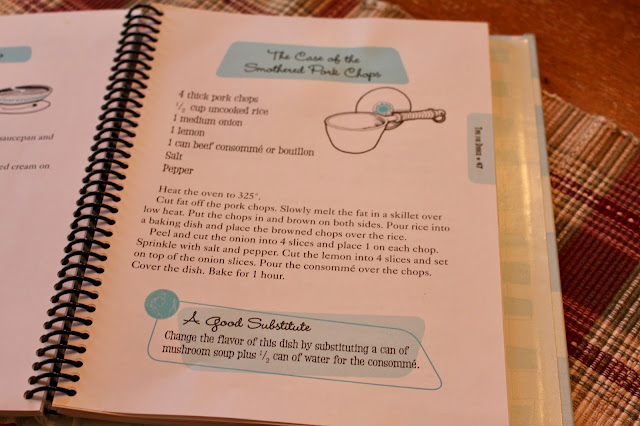 saucepan and
ed cream on
The Case of the
Smothered Pork Chops
4 thick pork chops
1/2 cup uncooked rice
1 medium onion
1 lemon
1 can beef consommé or bouillon
Salt
Pepper
Heat the oven to 325°.
Cut fat off the pork chops. Slowly melt the fat in a skillet over
low heat. Put the chops in and brown on both sides. Pour rice into
a baking dish and place the browned chops over the rice.
Peel and cut the onion into 4 slices and place 1 on each chop.
Sprinkle with salt and pepper. Cut the lemon into 4 slices and set
on top of the onion slices. Pour the consommé over the chops.
Cover the dish. Bake for 1 hour.
A Good Substitute
Change the flavor of this dish by substituting a can of
mushroom soup plus 1/2 can of water for the consommé.
47